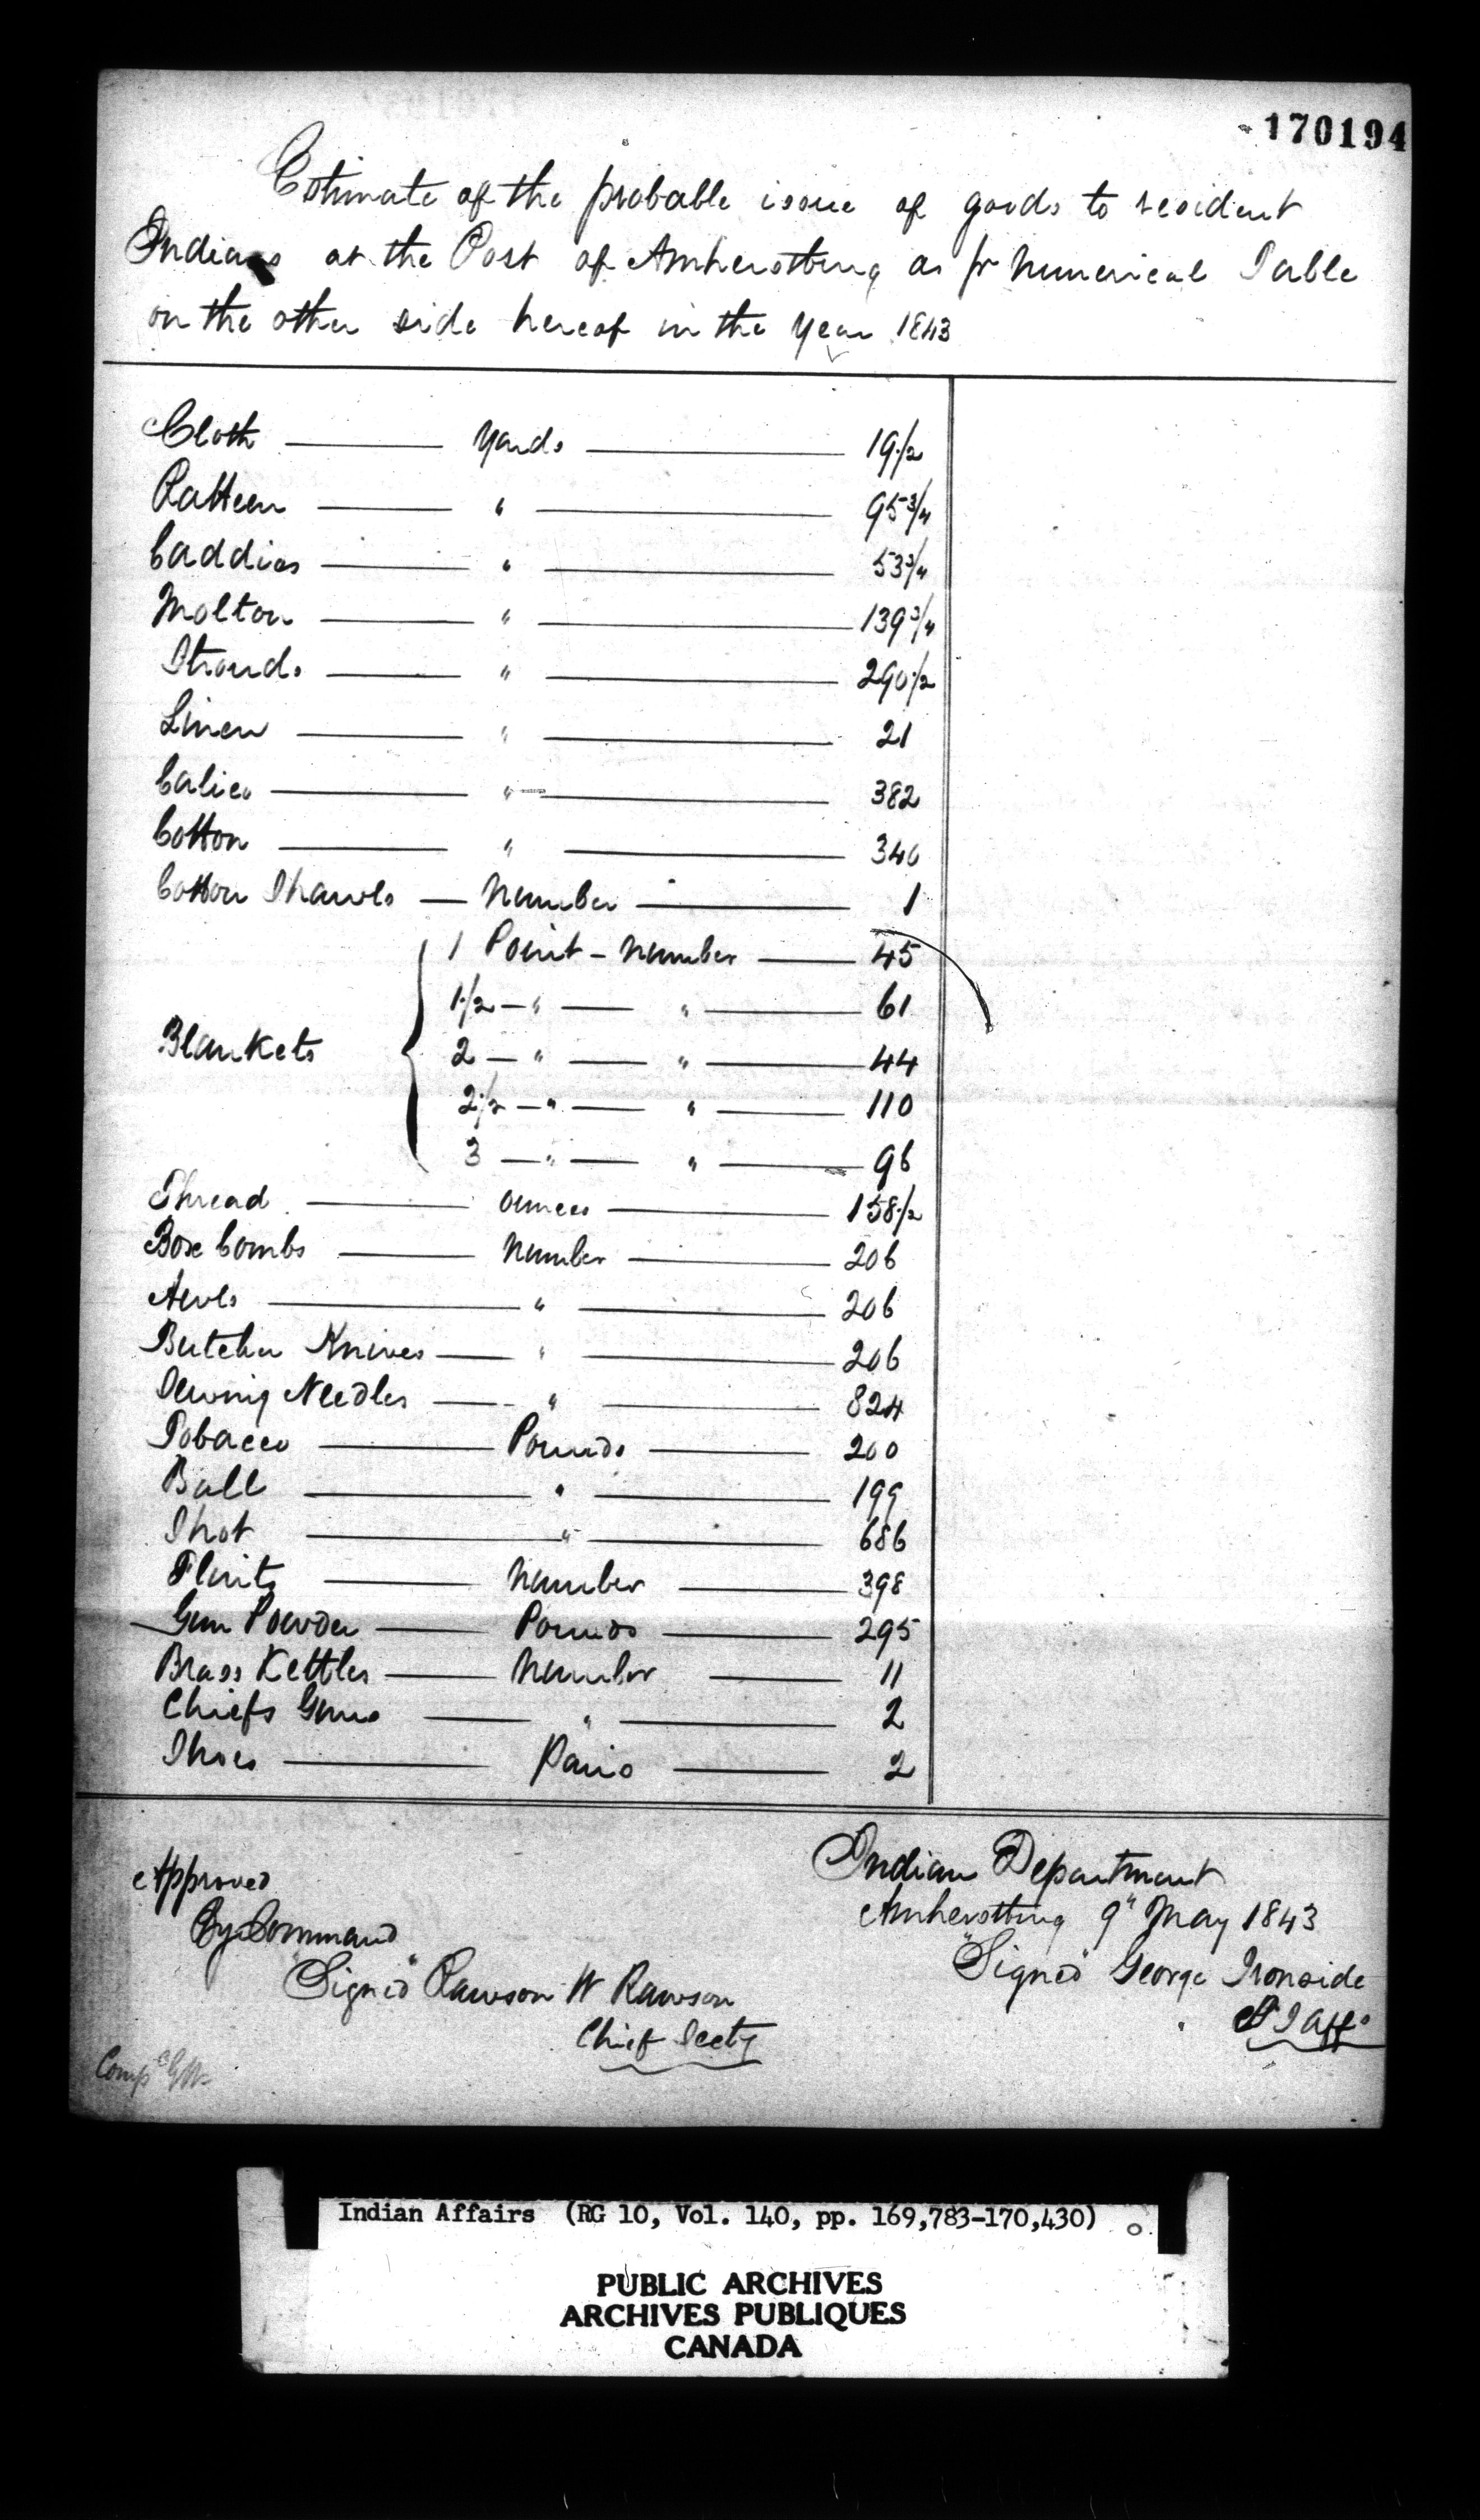 170194
Estimate of the probable issue of goods to resident
Indians at the Post of Amherstburg as pr Numerical Table
on the other side hereof in the year 1843
Cloth — Yards — 19 1/2
Ratteen — " — 95 3/4
Caddies — " — 53 3/4
Molton — " — 139 3/4
Strouds — " — 290 1/2
Linen — " — 21
Calico — " — 382
Cotton — " — 340
Cotton Shawls — Number — 1
1 Point - Number — 45
1 1/2 — " — " — 61
Blankets 2 — " — " — 44
2 1/2 — " — " — 110
3 — " — " — 96
Thread — ounces — 158 1/2
Box Combs — Number — 206
Awls — " — 206
Butcher Knives — " — 206
Sewing Needles — " — 824
Tobacco — Pounds — 200
Ball — " — 199
Shot — " — 686
Flints — Number — 398
Gun Powder — Pounds — 295
Brass Kettles — Number — 11
Chiefs Guns — " — 2
Shoes — Pairs — 2
Indian Department
Amherstburg 9" May 1843
"Signed" George Ironside
S I Affs
Approved
By Command
"Signed" Rawson W Rawson
Chief Secty
Indian Affairs (RG 10, Vol. 140, pp. 169,783-170,430)
PUBLIC ARCHIVES
ARCHIVES PUBLIQUES
CANADA